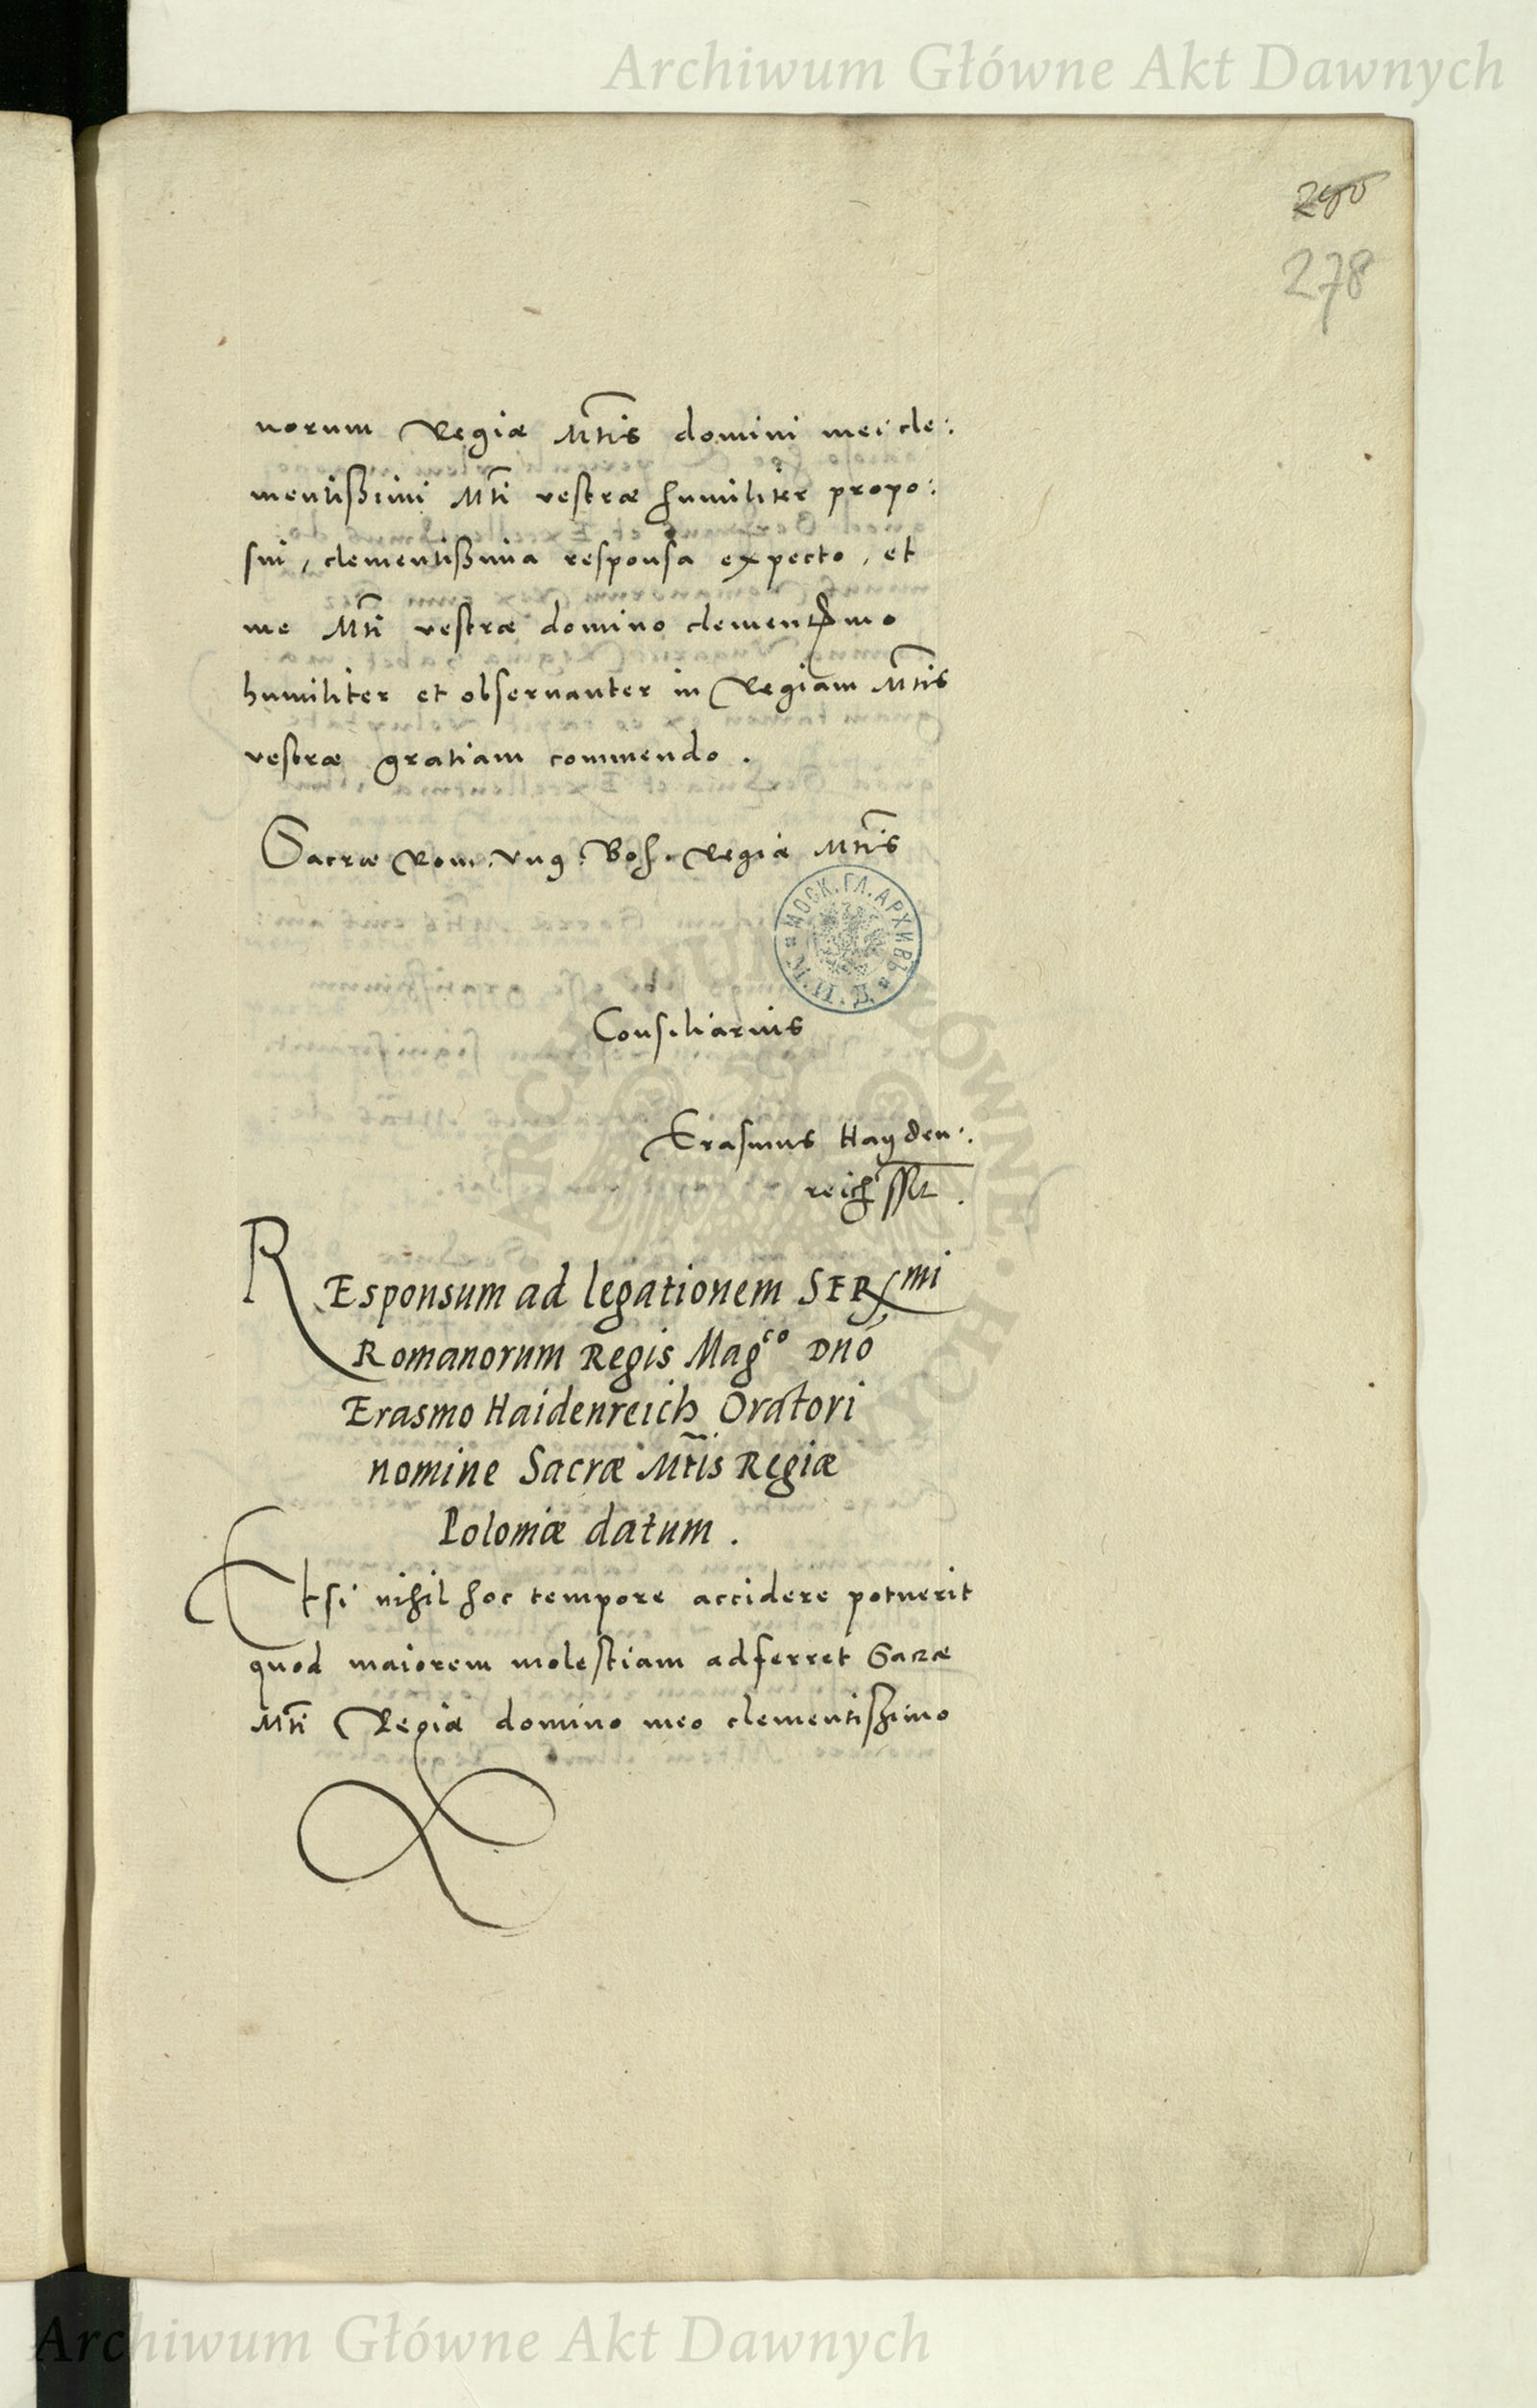 Archiwum Główne Akt Dawnych
278
norum Regiæ Mtis domini mei cle:
mentißimi Mti vestræ humiliter propo:
sui, clementißima responsa expecto, et
me Mti vestræ domino clementißimo
humiliter et obseruanter in Regiam Mtis
vestræ gratiam commendo.
Sacræ Rom. Vng. Boh. Regiæ Mtis
МОСК. ГЛ. АРХИВЪ М. И. Д.
Consiliarius
Erasmus Hayden:
reich
REsponsum ad legationem SERmi
Romanorum Regis Magco Dno
Erasmo Haidenreich Oratori
nomine Sacræ Mtis Regiæ
Poloniæ datum.
Etsi nihil hoc tempore accidere potuerit
quod maiorem molestiam adferret Sacræ
Mti Regiæ domino meo clementißimo
ARCHIWUM GŁÓWNE AKT DAWNYCH
Archiwum Główne Akt Dawnych